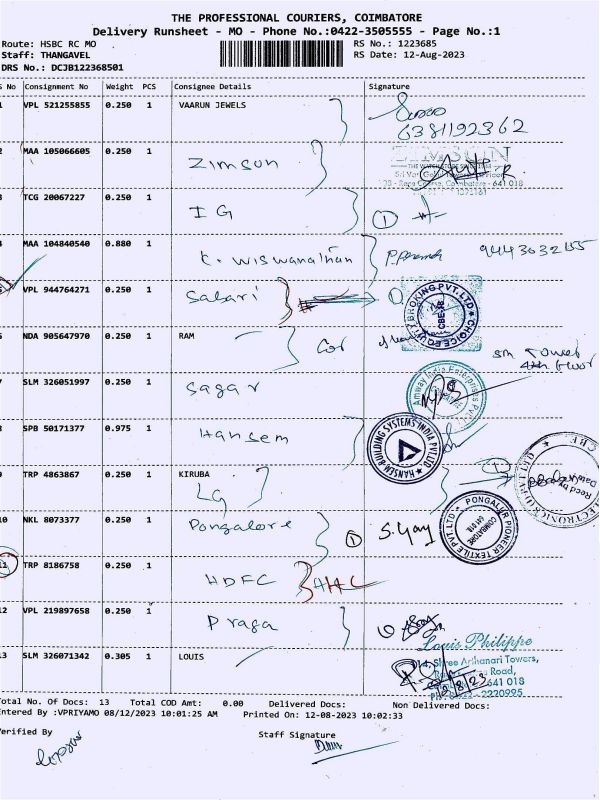 THE PROFESSIONAL COURIERS, COIMBATORE
Delivery Runsheet - MO - Phone No.:0422-3505555 - Page No.:1
Route: HSBC RC MO
RS No.: 1223685
Staff: THANGAVEL
RS Date: 12-Aug-2023
DRS No.: DCJB122368501
S No Consignment No Weight PCS Consignee Details Signature
1 VPL 521255855 0.250 1 VAARUN JEWELS
6381192362
2 MAA 105066605 0.250 1 Zimson
3 TCG 20067227 0.250 1 IG
4 MAA 104840540 0.880 1 K. Wiswanathan
VPL 944764271 0.250 1 Sabari
CHOICE EQUITY BROKING PVT.LTD
CBE-18
6 NDA 905647970 0.250 1 RAM
Tower
4th floor
7 SLM 326051997 0.250 1 Sagar
Amway India Enterprises Pvt
8 SPB 50171377 0.975 1 Hansem
HANSEM BUILDING SYSTEMS INDIA PVT LTD
9 TRP 4863867 0.250 1 KIRUBA
LG
Recd by
10 NKL 8073377 0.250 1 Pongalore
PONGALUR PIONEER TEXTILE PVT LTD
COIMBATORE
641 018
11 TRP 8186758 0.250 1 HDFC
12 VPL 219897658 0.250 1 Praga
13 SLM 326071342 0.305 1 LOUIS
Louis Philippe
Shree Arthanari Towers,
Road,
641 018
2220995
Total No. Of Docs: 13 Total COD Amt: 0.00 Delivered Docs: Non Delivered Docs:
Entered By :VPRIYAMO 08/12/2023 10:01:25 AM Printed On: 12-08-2023 10:02:33
Verified By
Staff Signature